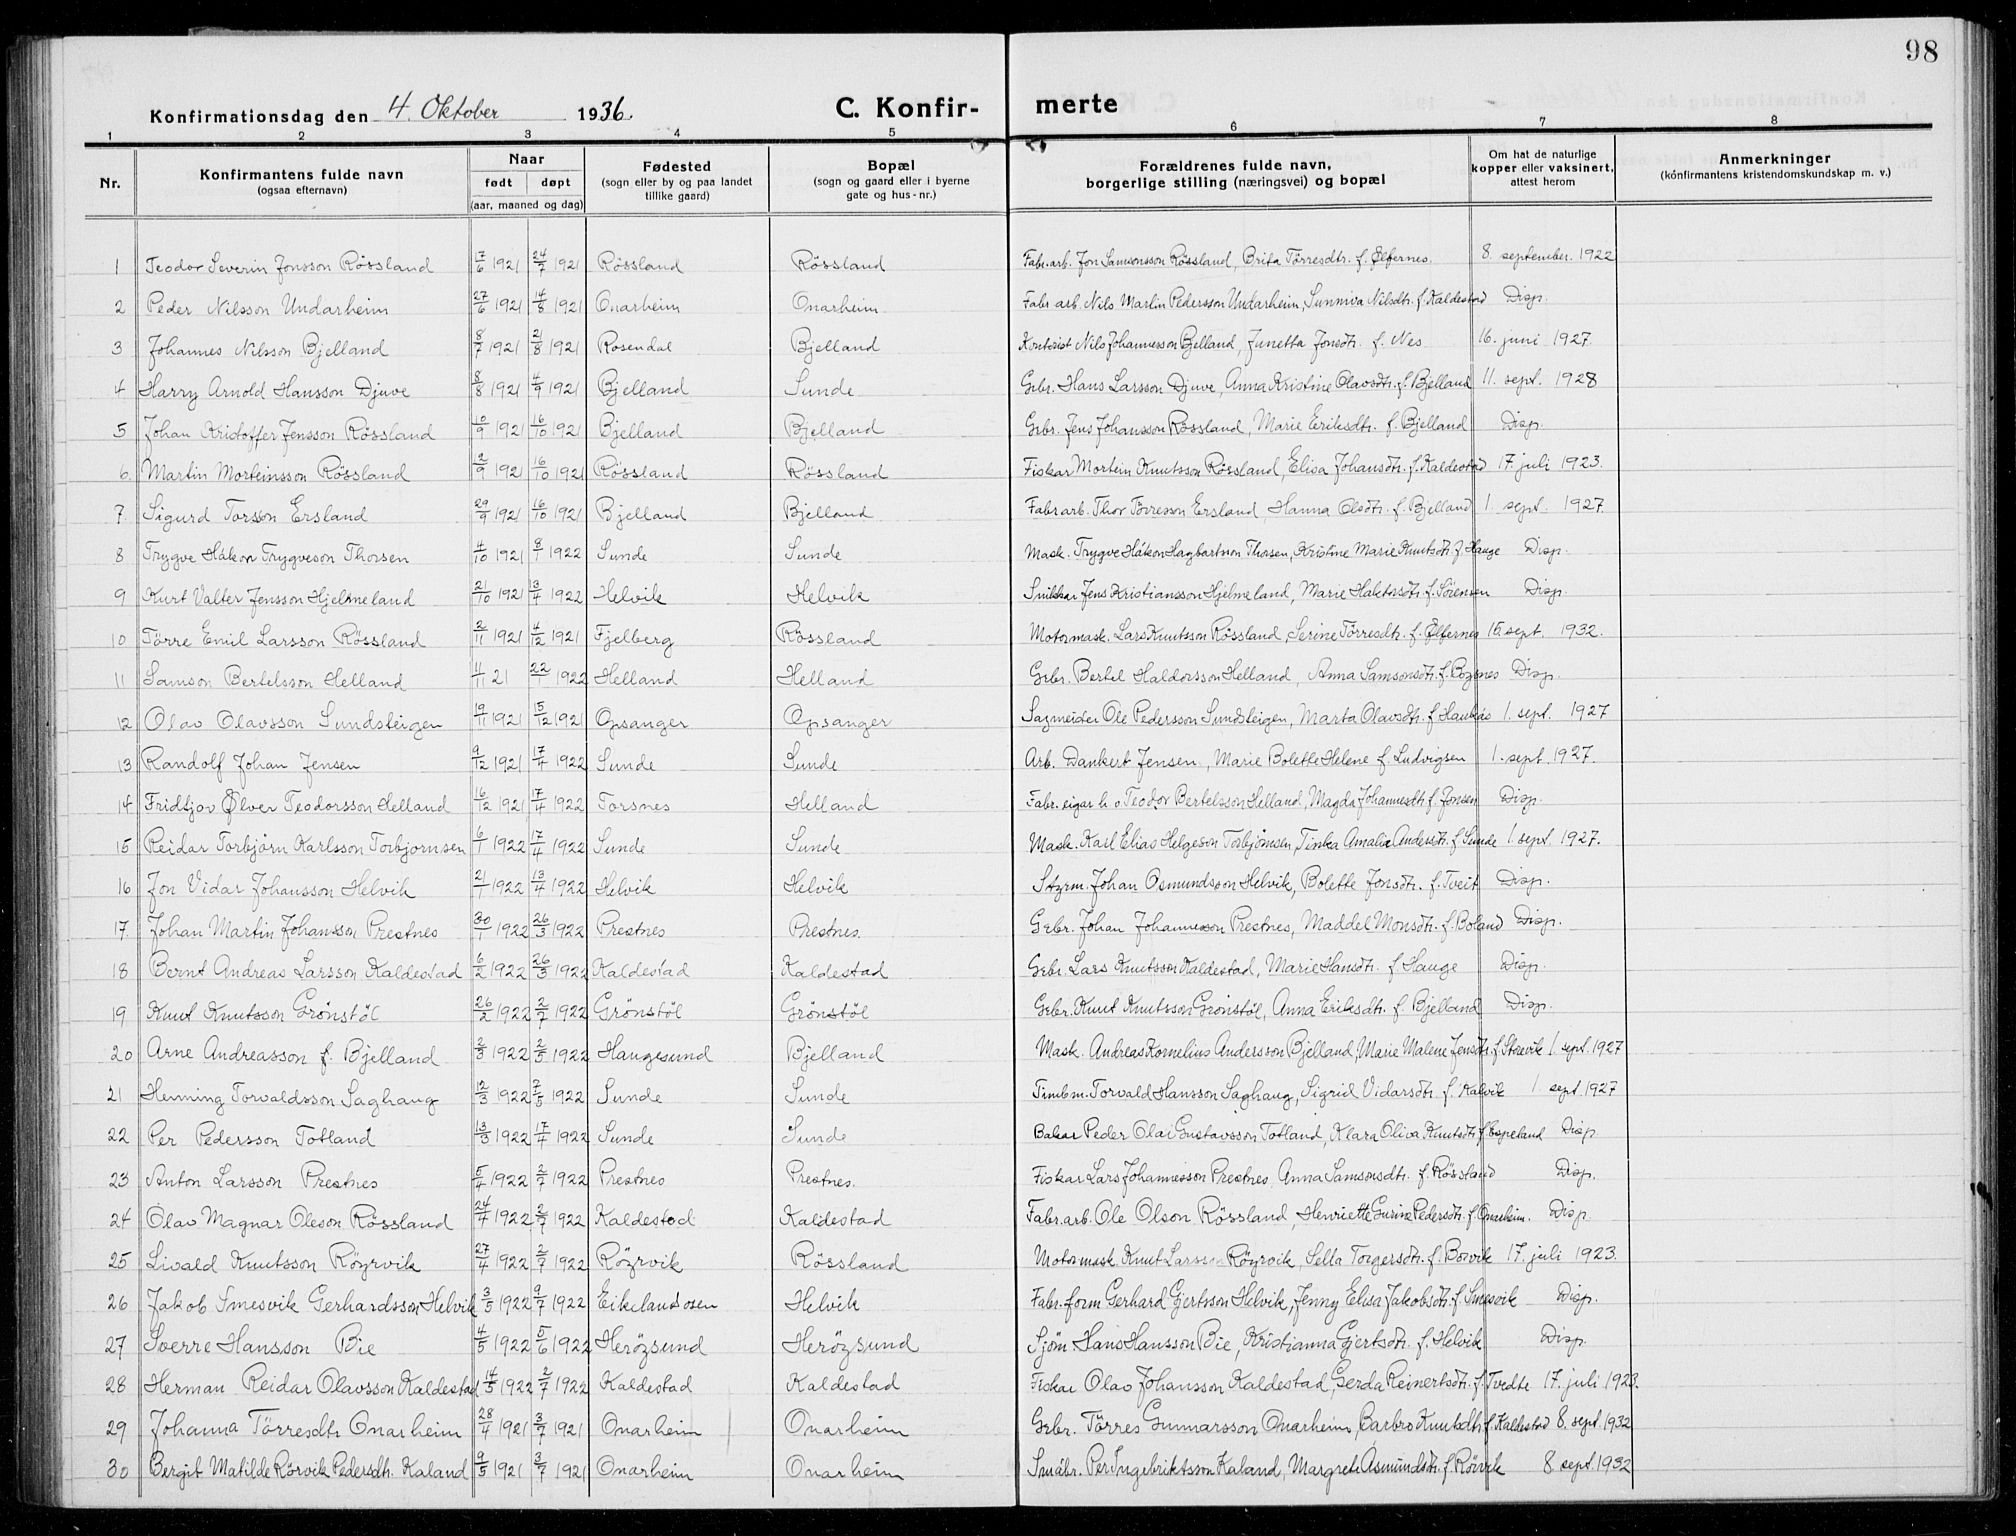 98
Konfirmationsdag den 4. Oktober 1936. C. Konfir- merte
1 2 3 4 5 6 7 8
Nr. Konfirmantens fulde navn (ogsaa efternavn) Naar født døpt (aar, maaned og dag) Fødested (sogn eller by og paa landet tillike gaard) Bopæl (sogn og gaard eller i byerne gate og hus-nr.) Forældrenes fulde navn, borgerlige stilling (næringsvei) og bopæl Om hat de naturlige kopper eller vaksinert, attest herom Anmerkninger (konfirmantens kristendomskundskap m. v.)
1 Teodor Severin Jonsson Røssland 17/6 1921 24/7 1921 Røssland Røssland Fabr.arb. Jon Samsonsson Røssland, Brita Tørresdtr. f. Ølfernes. 8. september. 1922
2 Peder Nilsson Undarheim 27/6 1921 14/8 1921 Onarheim Onarheim Fabr arb. Nils Martin Pedersson Undarheim, Sunniva Nilsdtr. f. Kaldestad Disp.
3 Johannes Nilsson Bjelland 8/7 1921 21/8 1921 Rosendal Bjelland Kontorist Nils Johannesson Bjelland, Junetta Jonsdtr. f. Nes 16. juni 1927.
4 Harry Arnold Hansson Djuve 8/8 1921 4/9 1921 Bjelland Sunde Gbr. Hans Larsson Djuve, Anna Kristine Olavsdtr. f. Bjelland 11. sept. 1928
5 Johan Kristoffer Jensson Røssland 10/9 1921 16/10 1921 Bjelland Bjelland Gbr. Jens Johansson Røssland, Marie Eriksdtr. f. Bjelland Disp.
6. Martin Morteinsson Røssland 12/9 1921 16/10 1921 Røssland Røssland Fiskar Mortein Knutsson Røssland, Elisa Johansdtr. f. Kaldestad 17. juli 1923.
7 Sigurd Torsson Ersland 29/9 1921 16/10 1921 Bjelland Bjelland Fabr arb. Thor Tørresson Ersland, Hanna Olsdtr. f. Bjelland 1. sept. 1927.
8 Trygve Håkon Trygveson Thorsen 4/10 1921 8/1 1922 Sunde Sunde Mask. Trygve Håkon Hagbartsson Thorsen, Kristine Marie Knutsdtr f. Hauge Disp.
9 Kurt Valter Jensson Hjelmeland 21/10 1921 13/4 1922 Helvik Helvik Snikkar Jens Kristiansson Hjelmeland, Marie Haktorsdtr. f. Sørensen Disp.
10 Tørre Emil Larsson Røssland 2/11 1921 4/12 1921 Fjelberg Røssland Motormask. Lars Knutsson Røssland, Serine Tørresdtr. f. Ølfernes 15 sept. 1932.
11 Samson Bertelsson Helland 4/11 21 22/1 1922 Helland Helland Gbr. Bertel Haldorsson Helland, Anna Samsonsdtr. f. Bogsnes Disp.
12 Olav Olavsson Sundsteigen 19/11 1921 15/12 1921 Opsanger Opsanger Sagmeister Ole Pedersson Sundsteigen, Marta Olavsdtr. f. Haukås 1. sept. 1927
13 Randolf Johan Jensen 9/12 1921 17/4 1922 Sunde Sunde Arb. Dankert Jensen, Marie Bolette Helene f. Ludvigsen 1. sept. 1927.
14 Fridtjov Ølver Teodorsson Helland 16/12 1921 17/4 1922 Torsnes Helland Fabr. eigar h o Teodor Bertelsson Helland, Magda Johannesdtr f. Jonsen Disp.
15 Reidar Torbjørn Karlsson Torbjørnsen 6/1 1922 17/4 1922 Sunde Sunde Mask. Karl Elias Helgeson Torbjørnsen, Tinka Amalia Andersdtr. f Sunde 1. sept 1927.
16 Jon Vidar Johansson Helvik 21/1 1922 13/4 1922 Helvik Helvik Styrm. Johan Osmundsson Helvik, Bolette Jonsdtr. f. Tveit Disp.
17. Johan Martin Johansson Prestnes 30/1 1922 26/3 1922 Prestnes Prestnes. Gbr. Johan Johannesson Prestnes, Maddel Monsdtr. f. Boland Disp.
18 Bernt Andreas Larsson Kaldestad 6/2 1922 26/3 1922 Kaldestad Kaldestad Gbr. Lars Knutsson Kaldestad, Marie Hansdtr. f. Hauge Disp.
19 Knut Knutsson Grønstøl 26/2 1922 2/7 1922 Grønstøl Grønstøl Gbr. Knut Knutsson Grønstøl, Anna Eriksdtr. f. Bjelland Disp.
20 Arne Andreasson f. Bjelland 2/3 1922 2/5 1922 Haugesund Bjelland Mask. Andreas Kornelius Andersson Bjelland, Marie Malene Jensdtr. f. Storevik 1. sept. 1927
21 Henning Torvaldsson Saghaug 12/3 1922 7/5 1922 Sunde Sunde Timbm. Torvald Hansson Saghaug, Sigrid Vidarsdtr. f. Kalvik 1. sept 1927
22 Per Pedersson Totland 13/3 1922 17/4 1922 Sunde Sunde Bakar Peder Olai Gustavsson Totland, Klara Oliva Knutsdtr f. Espeland Disp
23 Anton Larsson Prestnes 5/4 1922 2/7 1922 Prestnes Prestnes. Fiskar Lars Johannesson Prestnes, Anna Samsonsdtr. f. Røssland Disp.
24 Olav Magnar Oleson Røssland 24/4 1922 2/7 1922 Kaldestad Kaldestad Fabr. arb. Ole Olson Røssland, Henriette Gurine Pedersdtr. f. Onarheim. Disp.
25 Livald Knutsson Røyrvik 27/4 1922 2/7 1922 Røyrvik Røssland Motormask. Knut Larsson Røyrvik, Sella Torgersdtr. f. Borvik 17. juli 1923.
26 Jakob Smesvik Gerhardsson Helvik 3/5 1922 9/7 1922 Eikelandsosen Helvik Fabr. form Gerhard Gjertsson Helvik, Jenny Elisa Jakobsdtr. f. Smesvik Disp.
27 Sverre Hansson Bie 4/5 1922 5/6 1922 Herøysund Herøysund Sjøm Hans Hansson Bie, Kristianna Gjertsdtr. f. Helvik Disp.
28 Herman Reidar Olavsson Kaldestad 14/5 1922 2/7 1922 Kaldestad Kaldestad Fiskar Olav Johansson Kaldestad, Gerda Reinertsdtr. f. Tvedte 17. juli 1923.
29 Johanna Tørresdtr Onarheim 28/4 1921 3/7 1921 Onarheim Onarheim Gbr. Tørres Gunnarsson Onarheim, Barbro Knutsdtr f. Kaldestad 8. sept. 1932
30 Bergit Matilde Rørvik Pedersdtr. Kaland 9/5 1921 3/7 1921 Onarheim Onarheim Småbr. Per Ingebriktsson Kaland, Margrete Asmundsdtr. f. Rørvik 8 sept. 1932